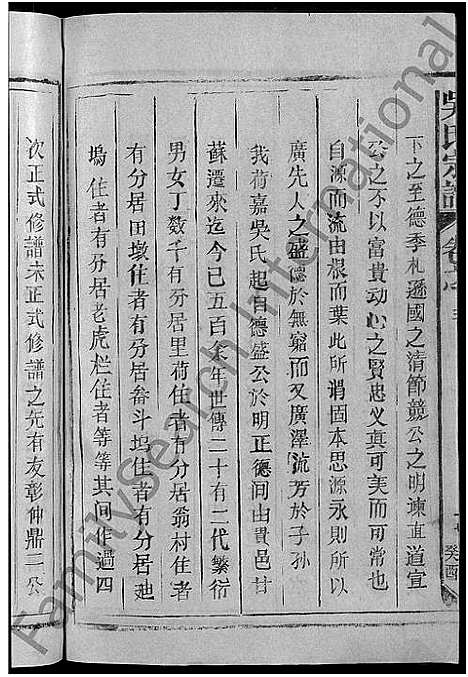 吳氏宗譜
卷
癸酉
下之至德季札遜國之清節競公之明諫直道宣
公之不以富貴动心之賢忠义真可美而可兴
自源而流由根而葉此所谓固本思源永則所以
廣先人之盛德於無窮而又廣澤流芳於子孫
我荷嘉吳氏起自德盛公於明正德间由貴邑甘
蘇遷來迄今已五百余年世傳二十有二代繁衍
男女丁数千有分居里荷住者有分居翁村住者
有分居田墩住者有分居畚斗塢住者有分居
塢住者有分居老虎栏住者等等其间作过四
次正式修譜未正式修譜之先有友彰仲鼎二公
FamilySearch International